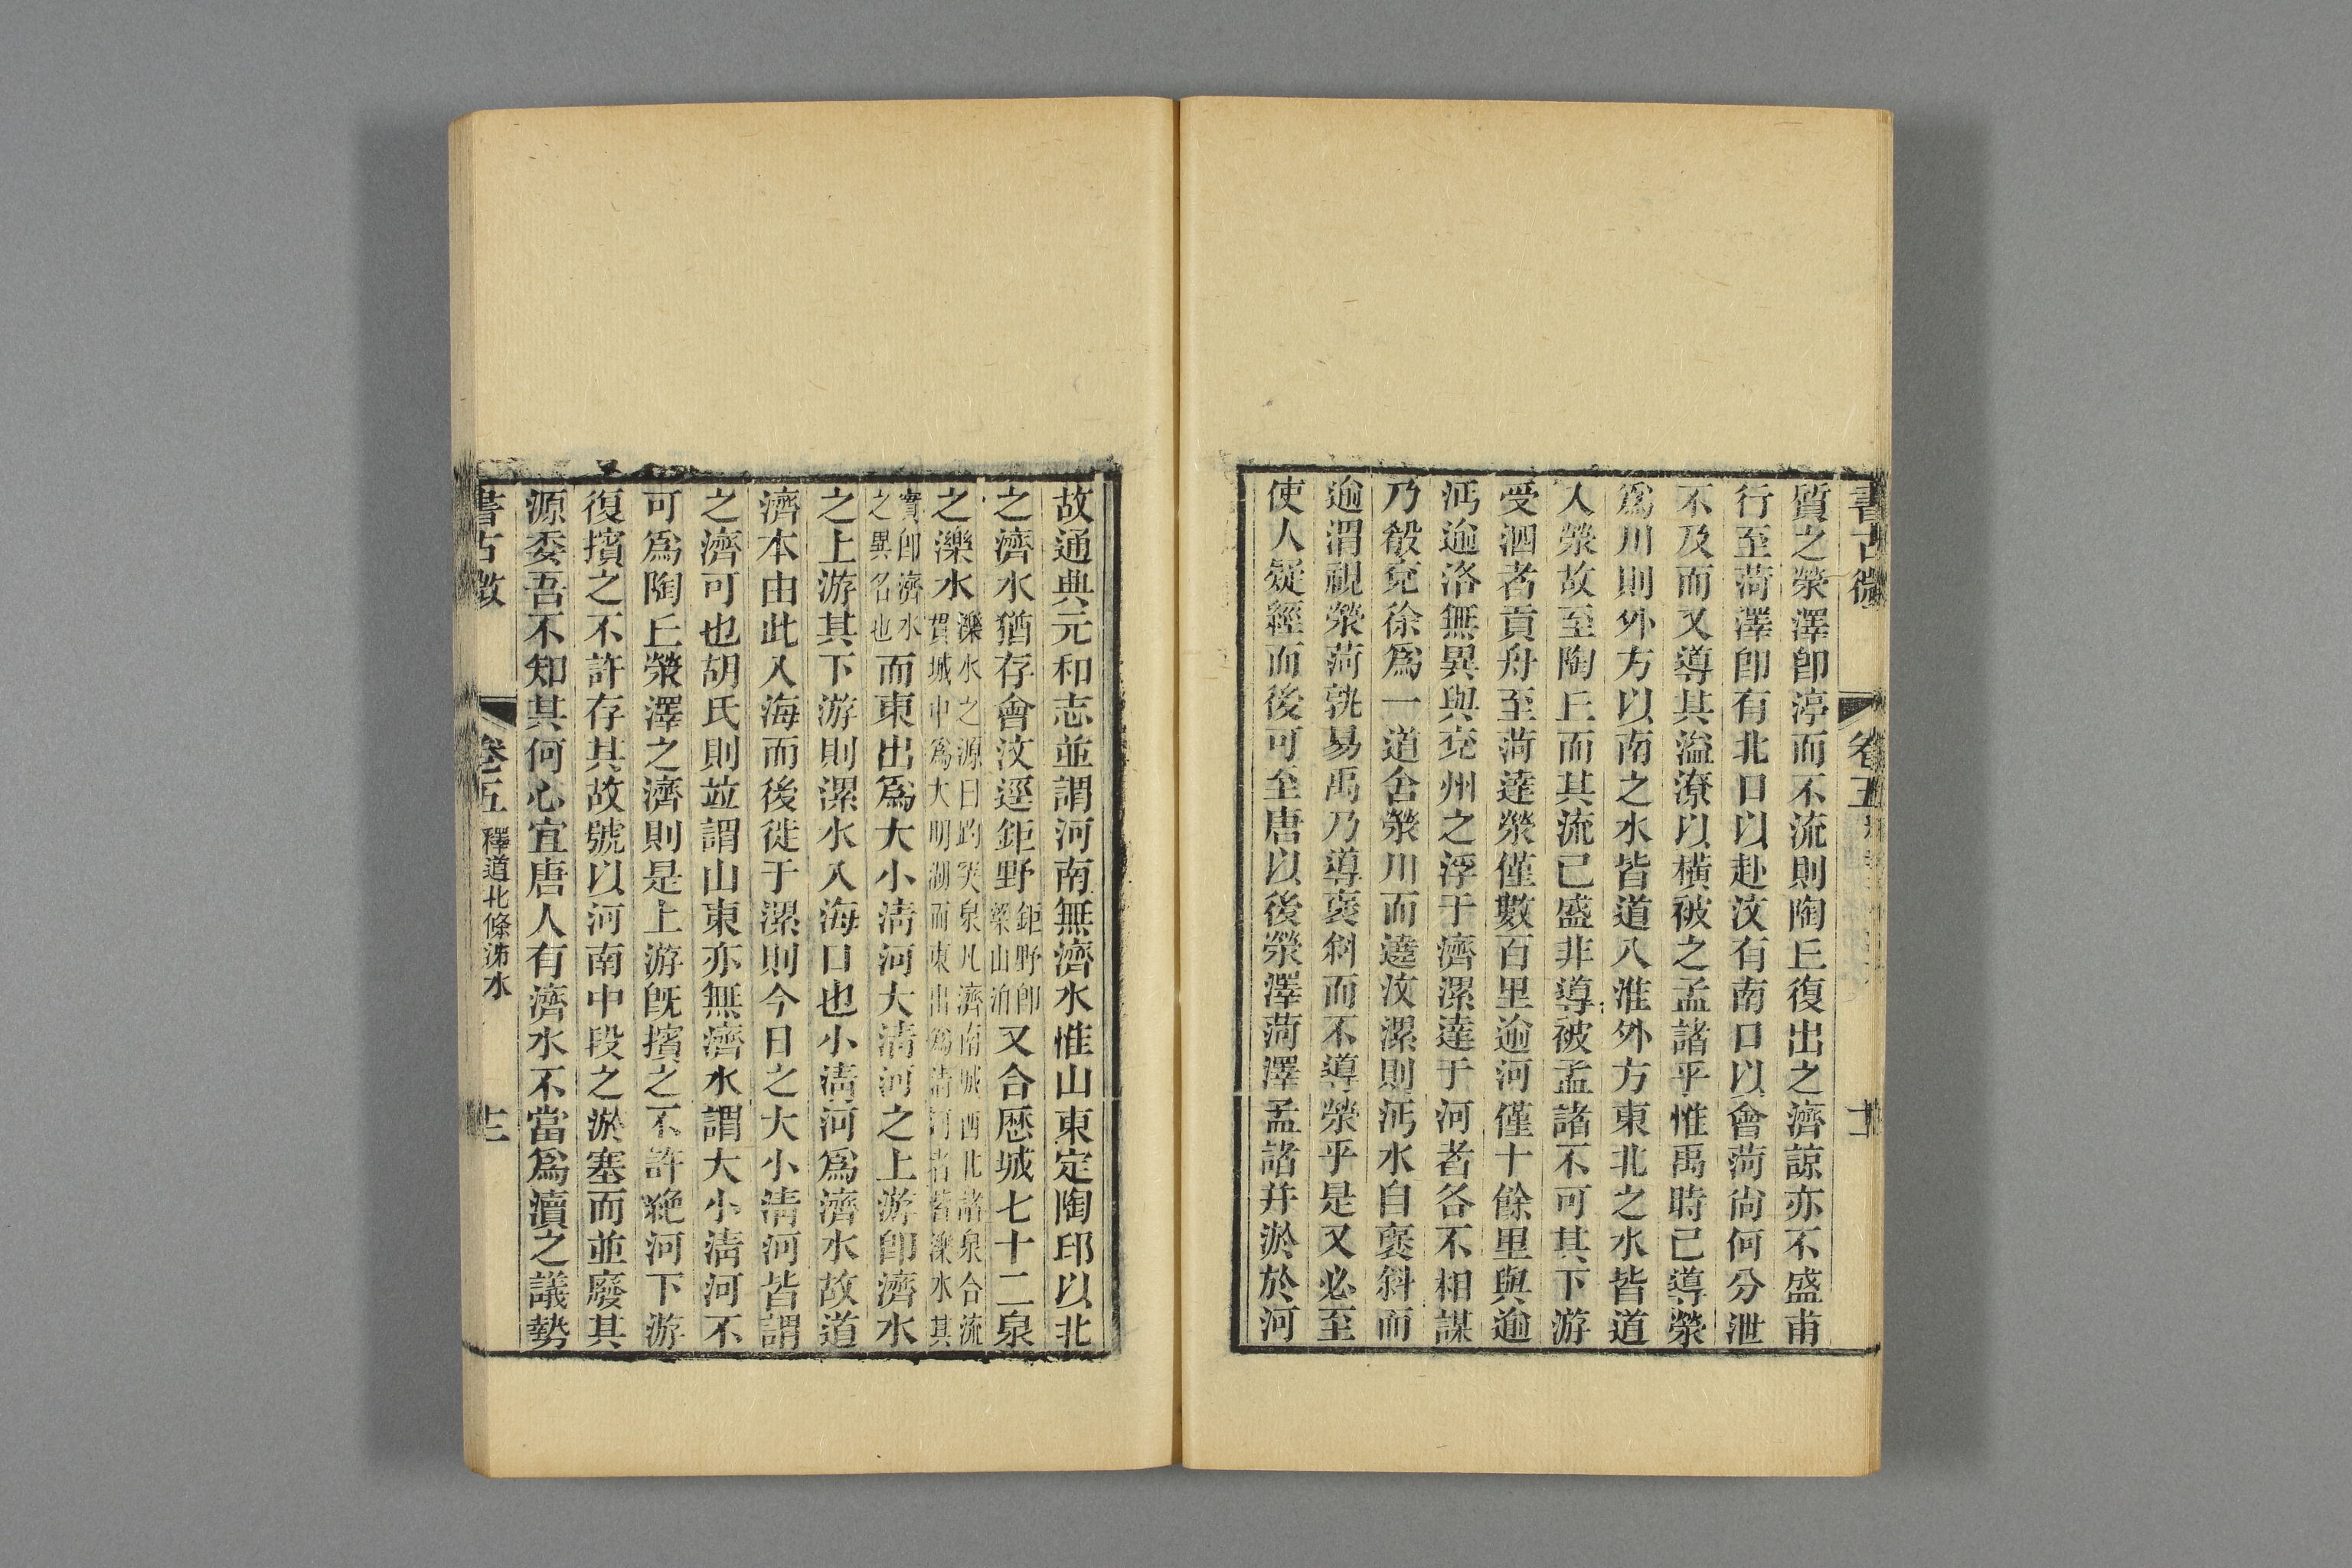 書古微
卷五
十二
質之滎澤卽渟而不流則陶丘復出之濟諒亦不盛甫
行至菏澤卽有北口以赴汶有南口以會菏尙何分泄
不及而又導其溢潦以橫被之孟諸乎惟禹時已導滎
爲川則外方以南之水皆道入淮外方東北之水皆道
入滎故至陶丘而其流已盛非導被孟諸不可其下游
受泗者貢舟至菏達滎僅數百里逾河僅十餘里與逾
沔逾洛無異與兗州之浮于濟漯達于河者各不相謀
乃殽兗徐爲一道舍滎川而達汶漯則沔水自褒斜而
逾渭視滎菏孰易禹乃導褒斜而不導滎乎是又必至
使人疑經而後可至唐以後滎澤菏澤孟諸幷淤於河
故通典元和志並謂河南無濟水惟山東定陶卭以北
之濟水猶存會汶逕鉅野鉅野卽梁山泊又合歴城七十二泉
之濼水濼水之源曰趵突泉凡濟南城西北諸泉合流貫城中爲大明湖而東出爲淸河者皆濼水其
實卽濟水之異名也而東出爲大小淸河大淸河之上游卽濟水
之上游其下游則漯水入海口也小淸河爲濟水故道
濟本由此入海而後徙于漯則今日之大小淸河皆謂
之濟可也胡氏則竝謂山東亦無濟水謂大小淸河不
可爲陶丘滎澤之濟則是上游旣擯之不許絶河下游
復擯之不許存其故號以河南中段之淤塞而並廢其
源委吾不知其何心宜唐人有濟水不當爲瀆之議勢
書古微
卷五
釋道北條泲水
十三